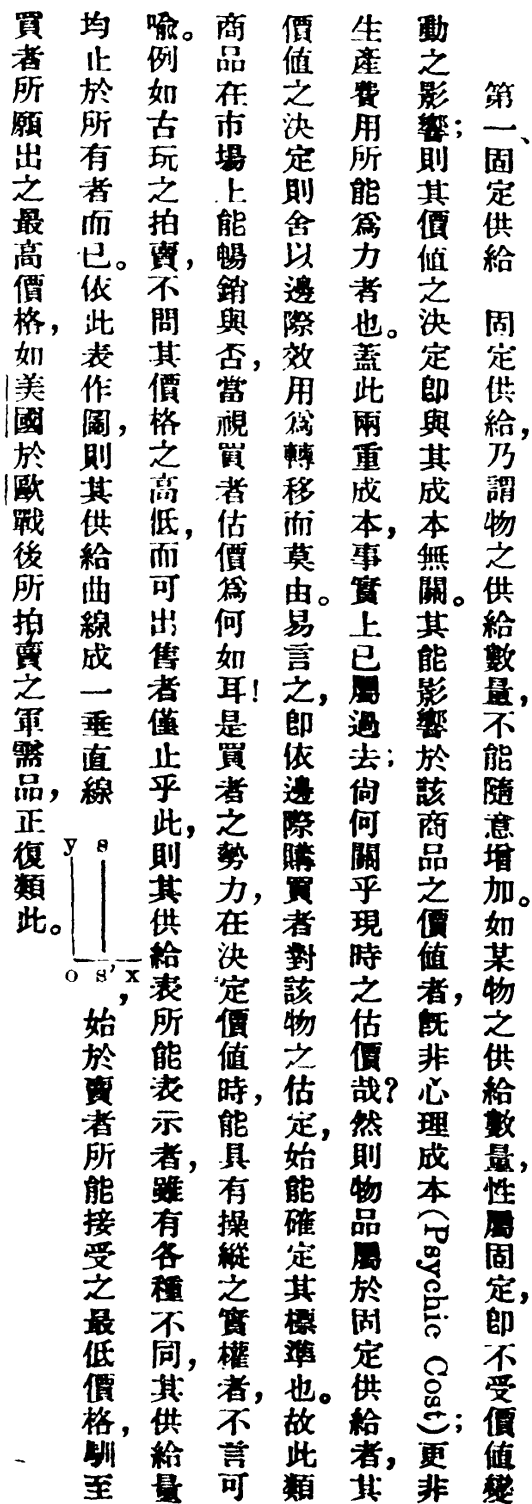 第一、固定供給　固定供給，乃謂物之供給數量，不能隨意增加。如某物之供給數量，性屬固定，卽不受價値變
動之影響；則其價値之決定卽與其成本無關。其能影響於該商品之價値者，旣非心理成本(Psychic Cost)；更非
生產費用所能爲力者也。蓋此兩重成本，事實上已屬過去；尙何關乎現時之估價哉？然則物品屬於固定供給者，其
價値之決定則舍以邊際效用爲轉移而莫由。易言之，卽依邊際購買者對該物之估定，始能確定其標準也。故此類
商品在市場上能暢銷與否，當視買者估價爲何如耳！是買者之勢力，在決定價値時，能具有操縱之實權者，不言可
喩。例如古玩之拍賣，不問其價格之高低，而可出售者僅止乎此，則其供給表所能表示者，雖有各種不同，其供給量
均止於所有者而已。依此表作圖，則其供給曲線成一垂直線
y s
o s' x
，始於賣者所能接受之最低價格，馴至
買者所願出之最高價格，如美國於歐戰後所拍賣之軍需品，正復類此。